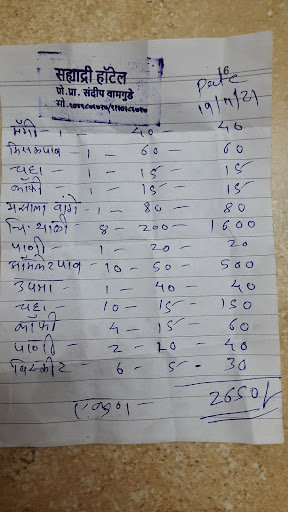 सह्याद्री हॉटेल
प्रो.प्रा. संदीप वामगुडे
Date
19/11/21
मॅगी - 1 - 40 - 40
मिसळपाव - 1 - 60 - 60
चहा - 1 - 15 - 15
कॉफी - 1 - 15 - 15
मसाला वांगे - 1 - 80 - 80
चि. थाळी - 8 - 200 - 1600
पाणी - 1 - 20 - 20
ऑम्लेटपाव - 10 - 50 - 500
उपमा - 1 - 40 - 40
चहा - 10 - 15 - 150
कॉफी 4 - 15 - 60
पाणी - 2 - 20 - 40
बिस्कीट - 6 - 5 - 30
एकूण - 2650/